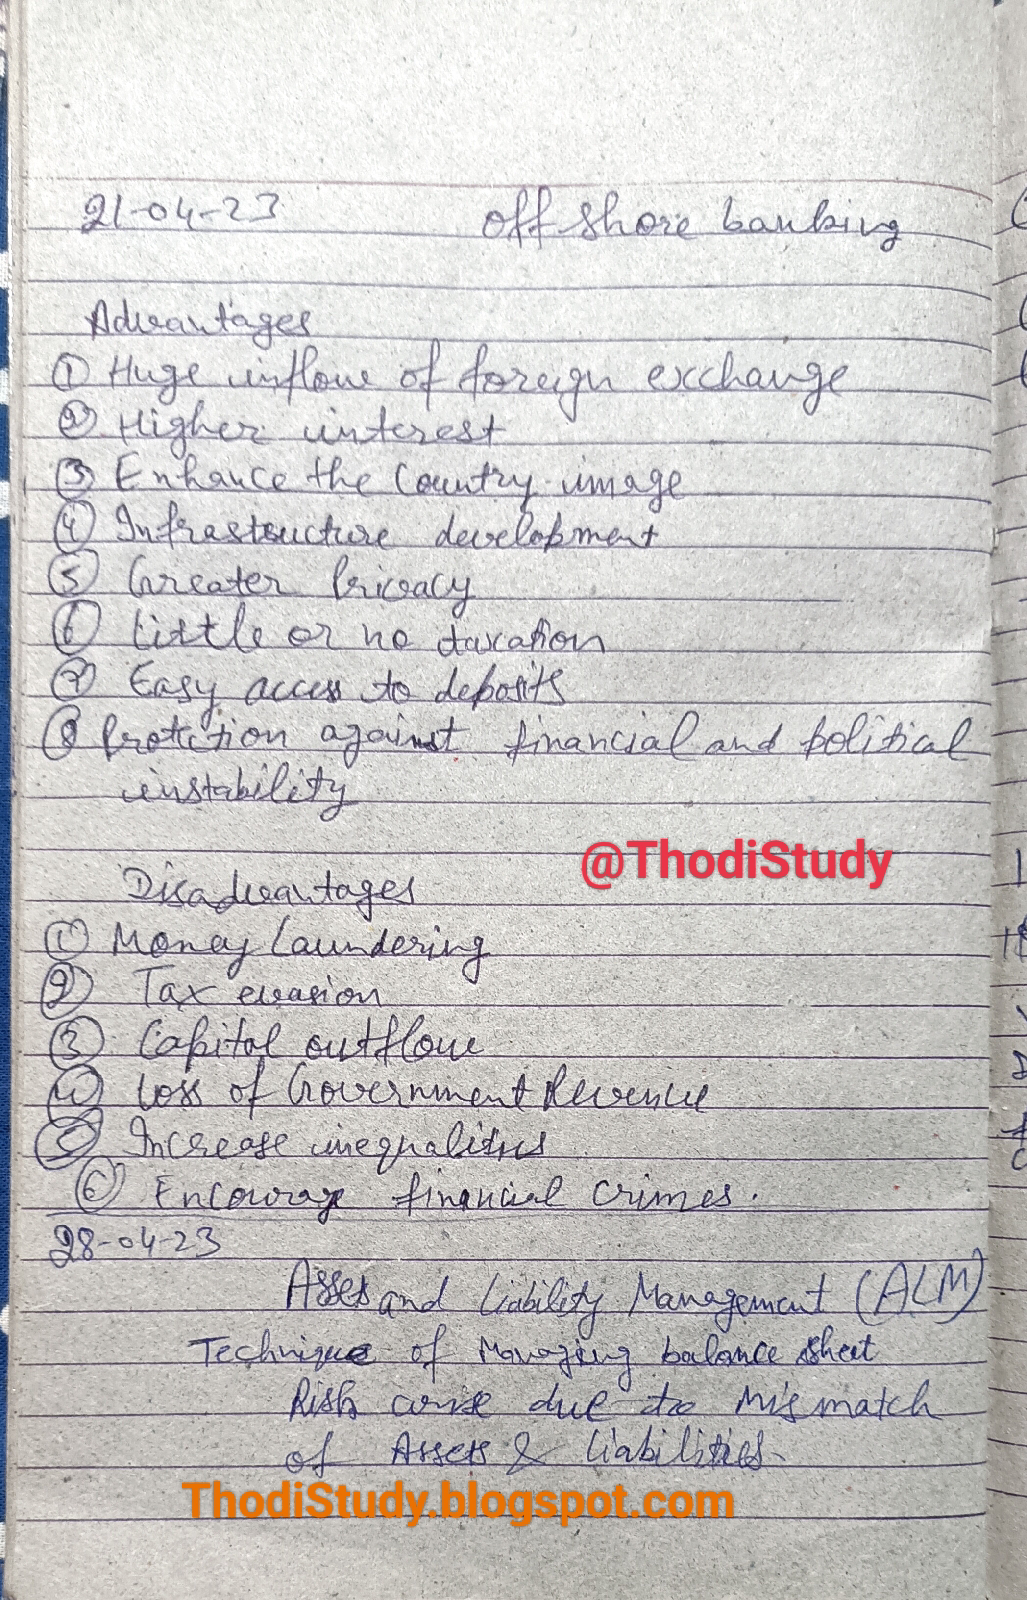 21-04-23 Off shore banking
Advantages
① Huge inflow of foreign exchange
② Higher interest
③ Enhance the Country image
④ Infrastructure development
⑤ Greater Privacy
⑥ Little or no taxation
⑦ Easy access to deposits
⑧ Protection against financial and political
instability
@ThodiStudy
Disadvantages
① Money Laundering
② Tax evasion
③ Capital outflow
④ Loss of Government Revenue
⑤ Increase inequalities
⑥ Encourage financial crimes.
28-04-23
Asset and Liability Management (ALM)
Technique of Managing balance sheet
Risk arise due to Mismatch
of Assets & Liabilities.
ThodiStudy.blogspot.com